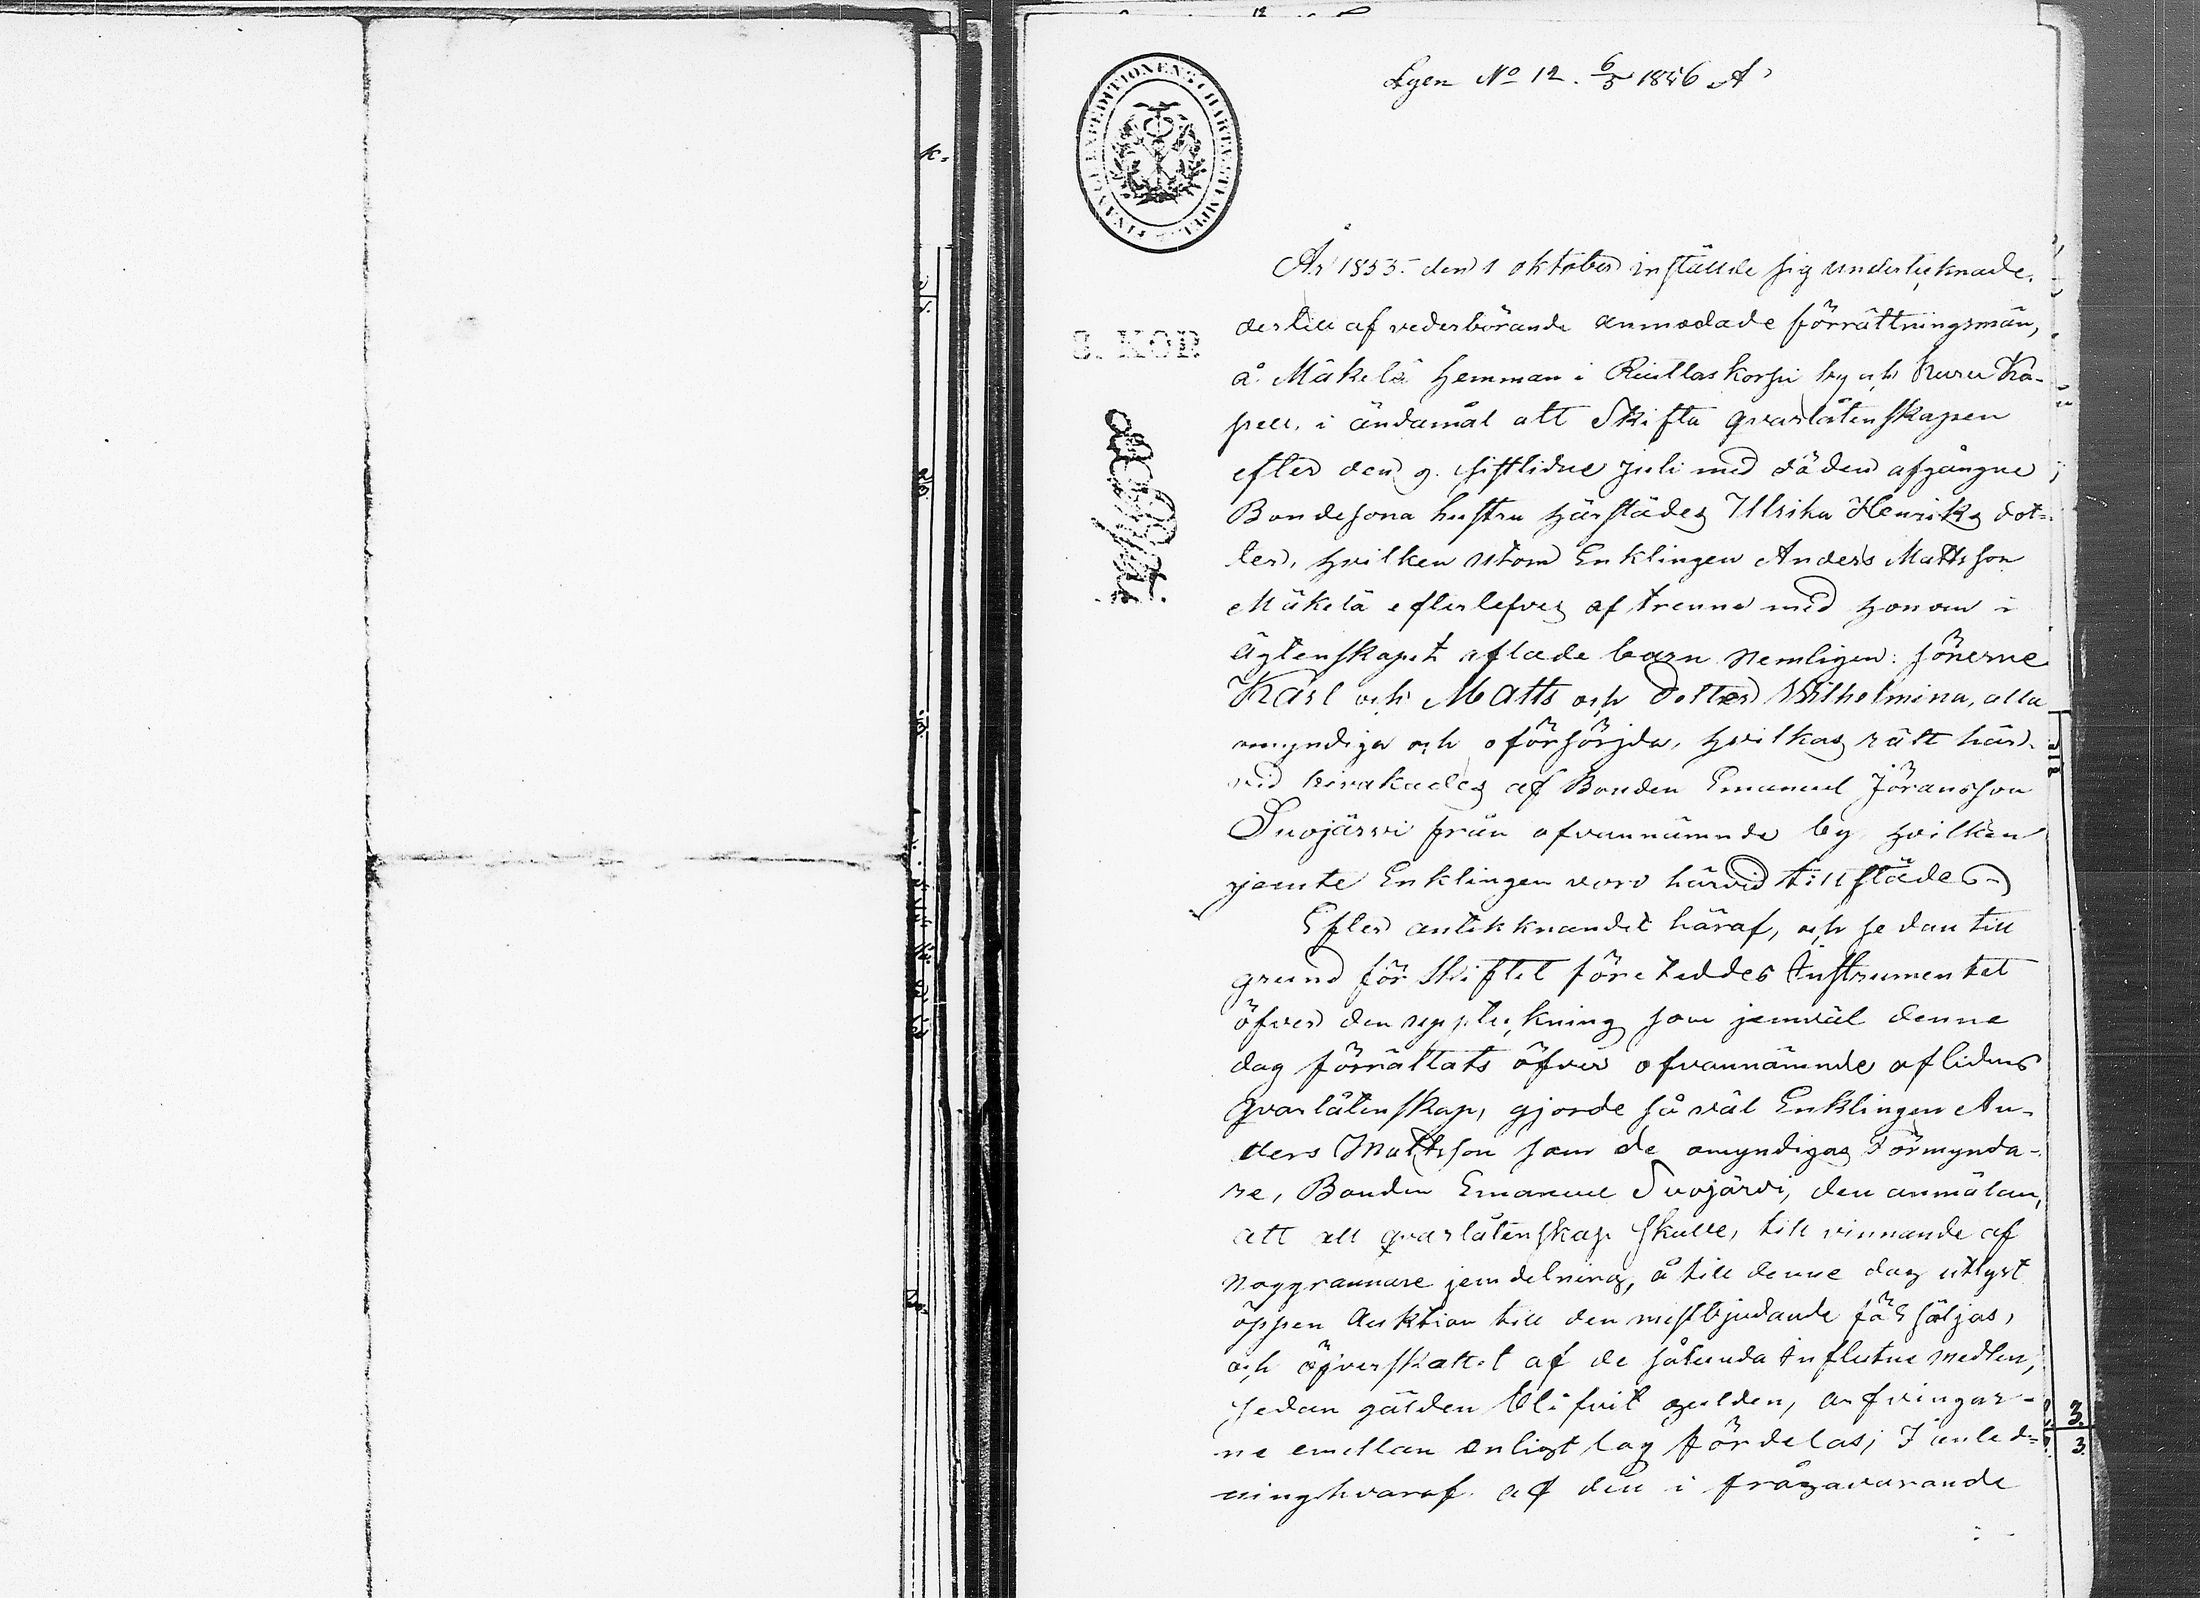 Egen No 12. 6/5 1856 A
FINANCE EXPEDITIONENS CHARTÆ STEMPEL
3. KOP.
År 1853 den 1 oktober inställde sig undertecknade,
dertill af vederbörande anmodade förrättningsmän,
å Mäkelä hemman i Riuttaskorpi by och Kuru Ka-
pell, i ändamål att Skifta qvarlåtenskapen
efter den 9. sistlidne juli med döden afgångne
Bondesona hustru härstädes Ulrika Henriks dot-
ter, hvilken utom Enklingen Anders Mattsson
Mäkelä efterlefves af trenne med honom i
ägtenskapet aflade barn nemligen: sönerne
Karl och Matts och dotter Wilhelmina, alla
omyndiga och oförsörjda, hvilkas rätt här-
vid bevakades af Bonden Emanuel Jöransson
Suojärvi från ofvannämnde by hvilken
jemte Enklingen voro härvid tillstädes
Efter antekknandet häraf, och sedan till
grund för Skiftet företeddes Instrumentet
öfver den uppteckning som jemväl denne
dag förrättats öfver ofvannämnde aflidnes
qvarlåtenskap, gjorde så väl Enklingen An-
ders Mattsson som de omyndigas Förmynda-
re, Bonden Emanuel Suojärvi, den anmälan,
att all qvarlåtenskap skulle, till vinnande af
noggrannare jemdelning, å till denne dag utlyst
öppen Auktion till den mestbjudande försäljas,
och öfverskottet af de sålunda influtne medlen,
sedan gälden blifvit gulden, arfvingar-
ne emellan enligt lag fördelas; I anled-
ning hvaraf af den i frågavarande
3.
3.